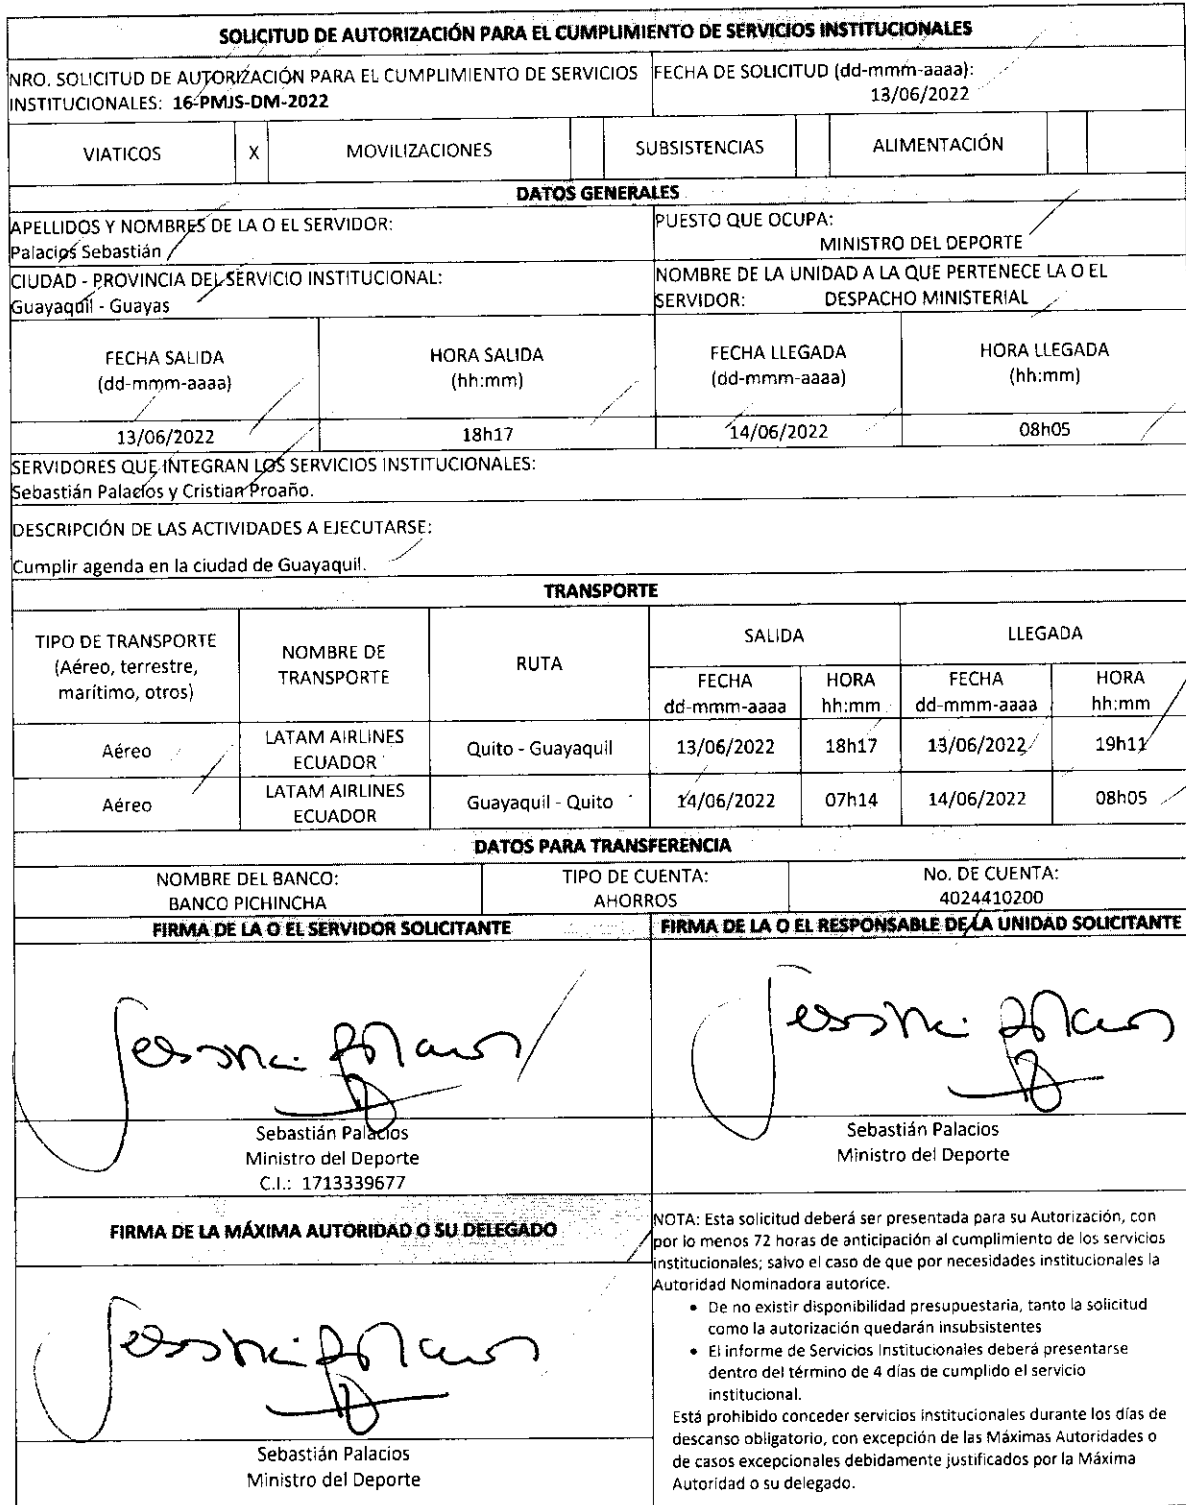 SOLICITUD DE AUTORIZACIÓN PARA EL CUMPLIMIENTO DE SERVICIOS INSTITUCIONALES
NRO. SOLICITUD DE AUTORIZACIÓN PARA EL CUMPLIMIENTO DE SERVICIOS
INSTITUCIONALES: 16-PMJS-DM-2022
FECHA DE SOLICITUD (dd-mmm-aaaa):
13/06/2022
VIATICOS X MOVILIZACIONES SUBSISTENCIAS ALIMENTACIÓN
DATOS GENERALES
APELLIDOS Y NOMBRES DE LA O EL SERVIDOR:
Palacios Sebastián
PUESTO QUE OCUPA:
MINISTRO DEL DEPORTE
CIUDAD - PROVINCIA DEL SERVICIO INSTITUCIONAL:
Guayaquil - Guayas
NOMBRE DE LA UNIDAD A LA QUE PERTENECE LA O EL
SERVIDOR: DESPACHO MINISTERIAL
FECHA SALIDA
(dd-mmm-aaaa)
HORA SALIDA
(hh:mm)
FECHA LLEGADA
(dd-mmm-aaaa)
HORA LLEGADA
(hh:mm)
13/06/2022 18h17 14/06/2022 08h05
SERVIDORES QUE INTEGRAN LOS SERVICIOS INSTITUCIONALES:
Sebastián Palacios y Cristian Proaño.
DESCRIPCIÓN DE LAS ACTIVIDADES A EJECUTARSE:
Cumplir agenda en la ciudad de Guayaquil.
TRANSPORTE
TIPO DE TRANSPORTE
(Aéreo, terrestre,
marítimo, otros)
NOMBRE DE
TRANSPORTE
RUTA
SALIDA
LLEGADA
FECHA
dd-mmm-aaaa
HORA
hh:mm
FECHA
dd-mmm-aaaa
HORA
hh:mm
Aéreo
LATAM AIRLINES
ECUADOR
Quito - Guayaquil 13/06/2022 18h17 13/06/2022 19h11
Aéreo
LATAM AIRLINES
ECUADOR
Guayaquil - Quito 14/06/2022 07h14 14/06/2022 08h05
DATOS PARA TRANSFERENCIA
NOMBRE DEL BANCO:
BANCO PICHINCHA
TIPO DE CUENTA:
AHORROS
No. DE CUENTA:
4024410200
FIRMA DE LA O EL SERVIDOR SOLICITANTE
FIRMA DE LA O EL RESPONSABLE DE LA UNIDAD SOLICITANTE
Sebastián Palacios
Ministro del Deporte
C.I.: 1713339677
Sebastián Palacios
Ministro del Deporte
FIRMA DE LA MÁXIMA AUTORIDAD O SU DELEGADO
Sebastián Palacios
Ministro del Deporte
NOTA: Esta solicitud deberá ser presentada para su Autorización, con
por lo menos 72 horas de anticipación al cumplimiento de los servicios
institucionales; salvo el caso de que por necesidades institucionales la
Autoridad Nominadora autorice.
• De no existir disponibilidad presupuestaria, tanto la solicitud
como la autorización quedarán insubsistentes
• El informe de Servicios Institucionales deberá presentarse
dentro del término de 4 días de cumplido el servicio
institucional.
Está prohibido conceder servicios institucionales durante los días de
descanso obligatorio, con excepción de las Máximas Autoridades o
de casos excepcionales debidamente justificados por la Máxima
Autoridad o su delegado.